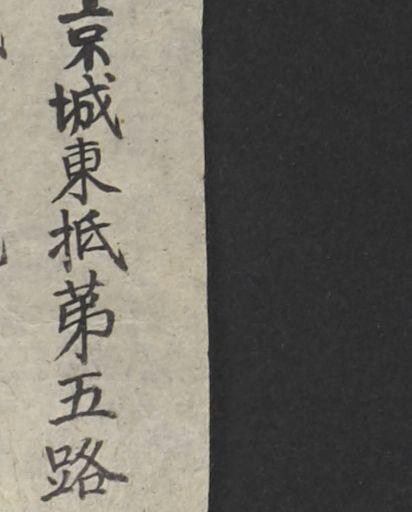 京城東抵苐五路